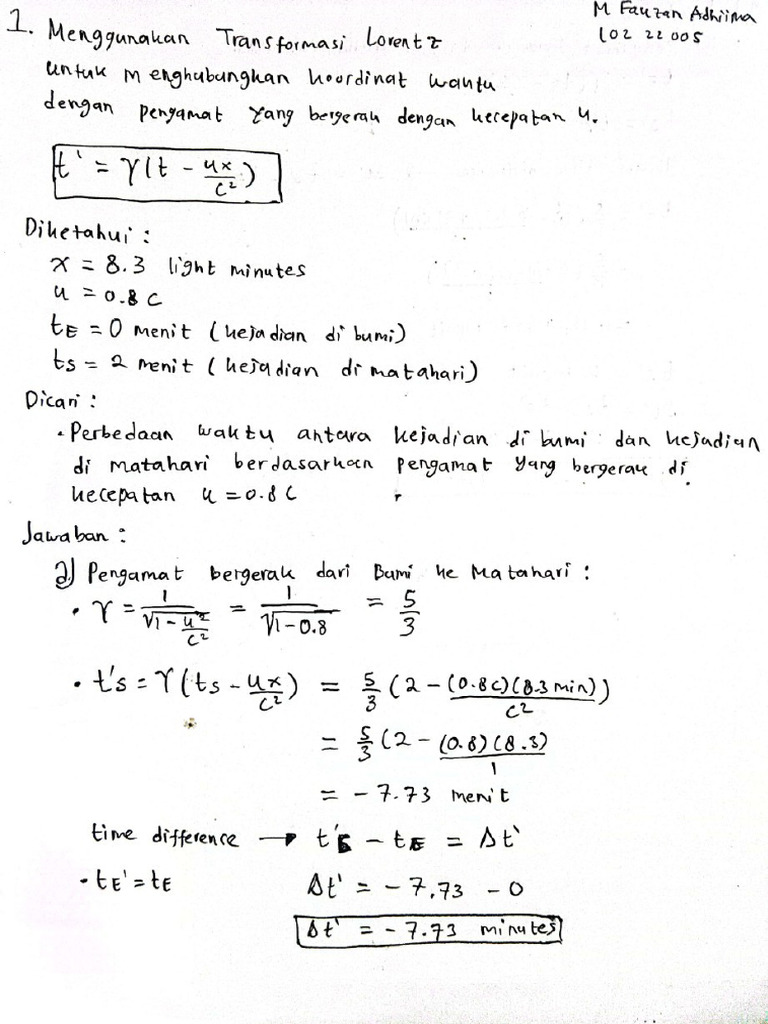 M Fauzan Adhiima
102 22 005
1. Menggunakan Transformasi Lorentz
untuk menghubungkan koordinat waktu
dengan pengamat yang bergerak dengan kecepatan u.
t' = γ(t - ux/c²)
Diketahui :
x = 8.3 light minutes
u = 0.8 c
tE = 0 menit (kejadian di bumi)
ts = 2 menit (kejadian di matahari)
Dicari :
• Perbedaan waktu antara kejadian di bumi dan kejadian
di matahari berdasarkan pengamat yang bergerak di
kecepatan u = 0.8 c
Jawaban :
a) Pengamat bergerak dari Bumi ke Matahari :
• γ = 1/√1 - u²/c² = 1/√1 - 0.8 = 5/3
• t's = γ(ts - ux/c²) = 5/3 (2 - (0.8c)(8.3 min)/c²)
= 5/3 (2 - (0.8)(8.3)/1
= - 7.73 menit
time difference → t's - tE = Δt'
• tE' = tE Δt' = - 7,73 - 0
Δt' = - 7.73 minutes